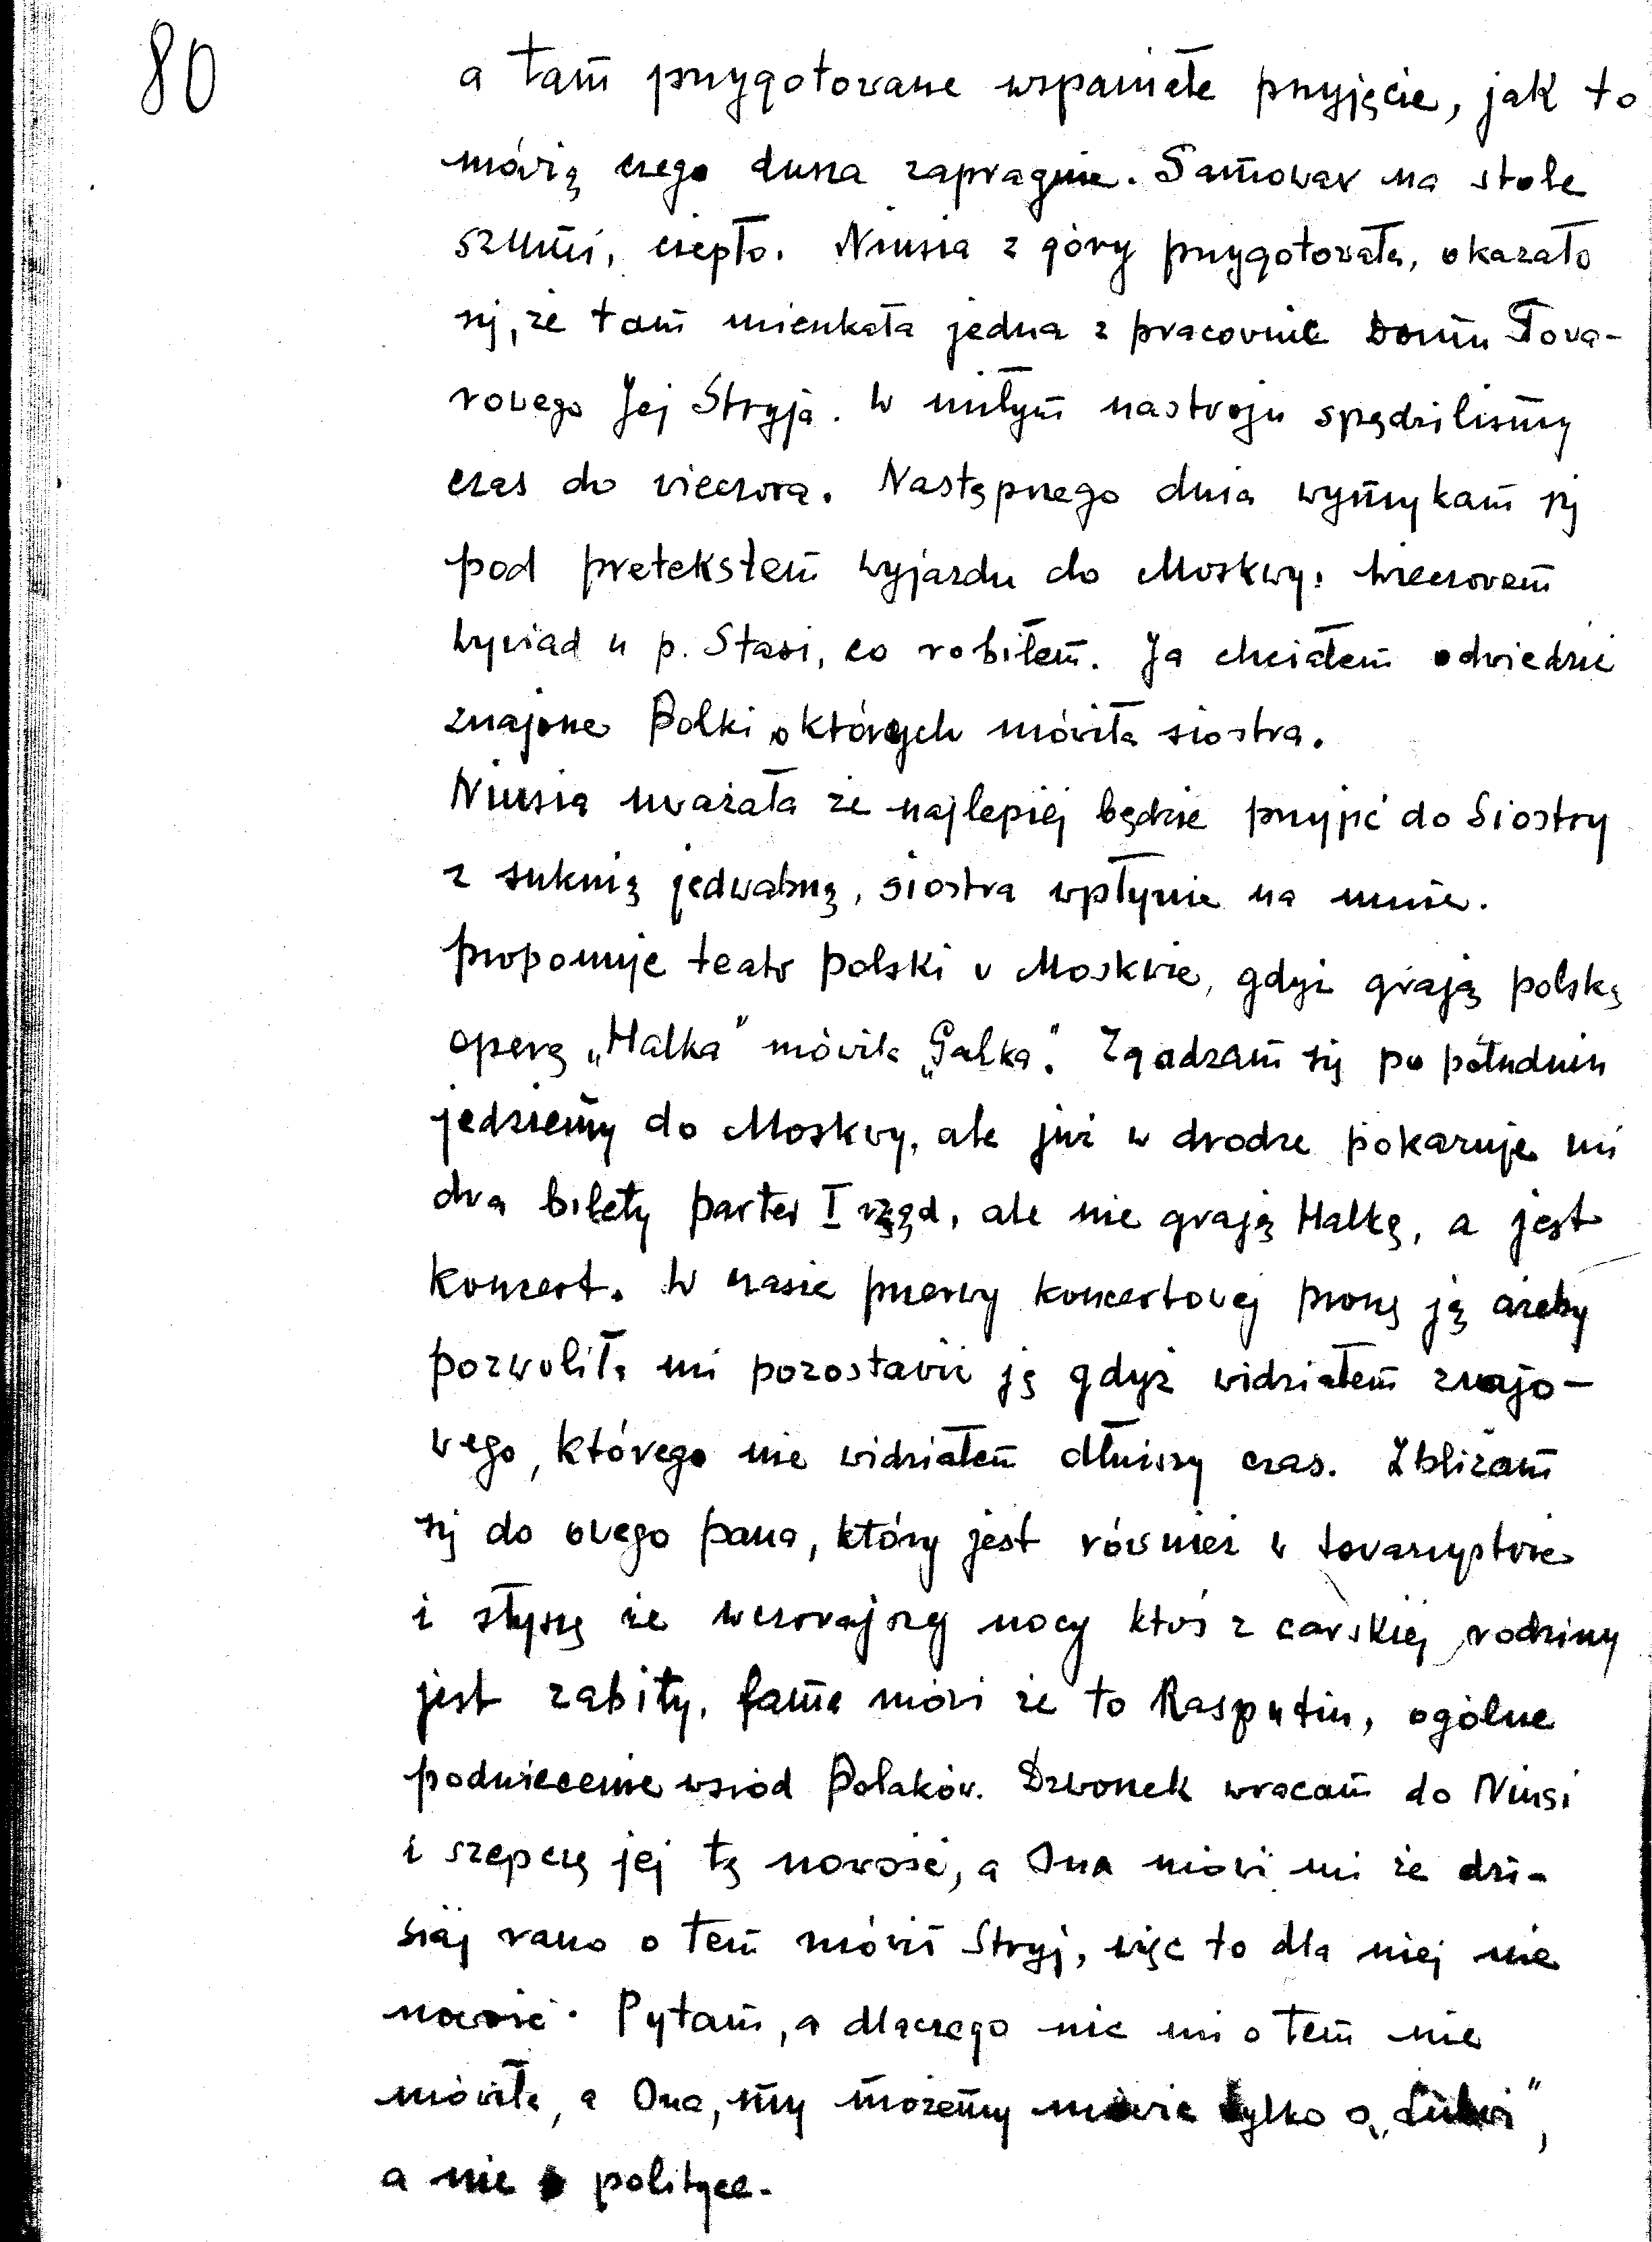 80
a tam przygotowane wspaniałe przyjęcie, jak to
mówią czego dusza zapragnie. Samowar na stole
szumi, ciepło. Niusia z góry przygotowała, okazało
się, że tam mieszkała jedna z pracownic Domu Towa-
rowego Jej Stryja. W miłym nastroju spędziliśmy
czas do wieczora. Następnego dnia wymykam się
pod pretekstem wyjazdu do Moskwy. Wieczorem
wywiad u p. Stasi, co robiłem. Ja chciałem odwiedzić
znajome Polki o których mówiła siostra.
Niusia uważała że najlepiej będzie przyjść do Siostry
z suknią jedwabną, siostra wpłynie na mnie.
proponuje teatr polski w Moskwie, gdyż grają polską
operę „Halka" mówiła „Galka". Zgadzam się po południu
jedziemy do Moskwy, ale już w drodze pokazuje mi
dwa bilety parter I rząd, ale nie grają Halkę, a jest
koncert. W czasie przerwy koncertowej proszę ją ażeby
pozwoliła mi pozostawić ją gdyż widziałem znajo-
wego, którego nie widziałem dłuższy czas. Zbliżam
się do owego pana, który jest również w towarzystwie
i słyszę że wczorajszej nocy ktoś z carskiej rodziny
jest zabity, fama mówi że to Rasputin, ogólne
podniecenie wśród Polaków. Dzwonek wracam do Niusi
i szepczę jej tę nowość, a Ona mówi mi że dzi-
siaj rano o tem mówił Stryj, więc to dla niej nie
nowość. Pytam, a dlaczego nic mi o tem nie
mówiła, a Ona, my możemy mówić tylko o „
a nie o polityce.